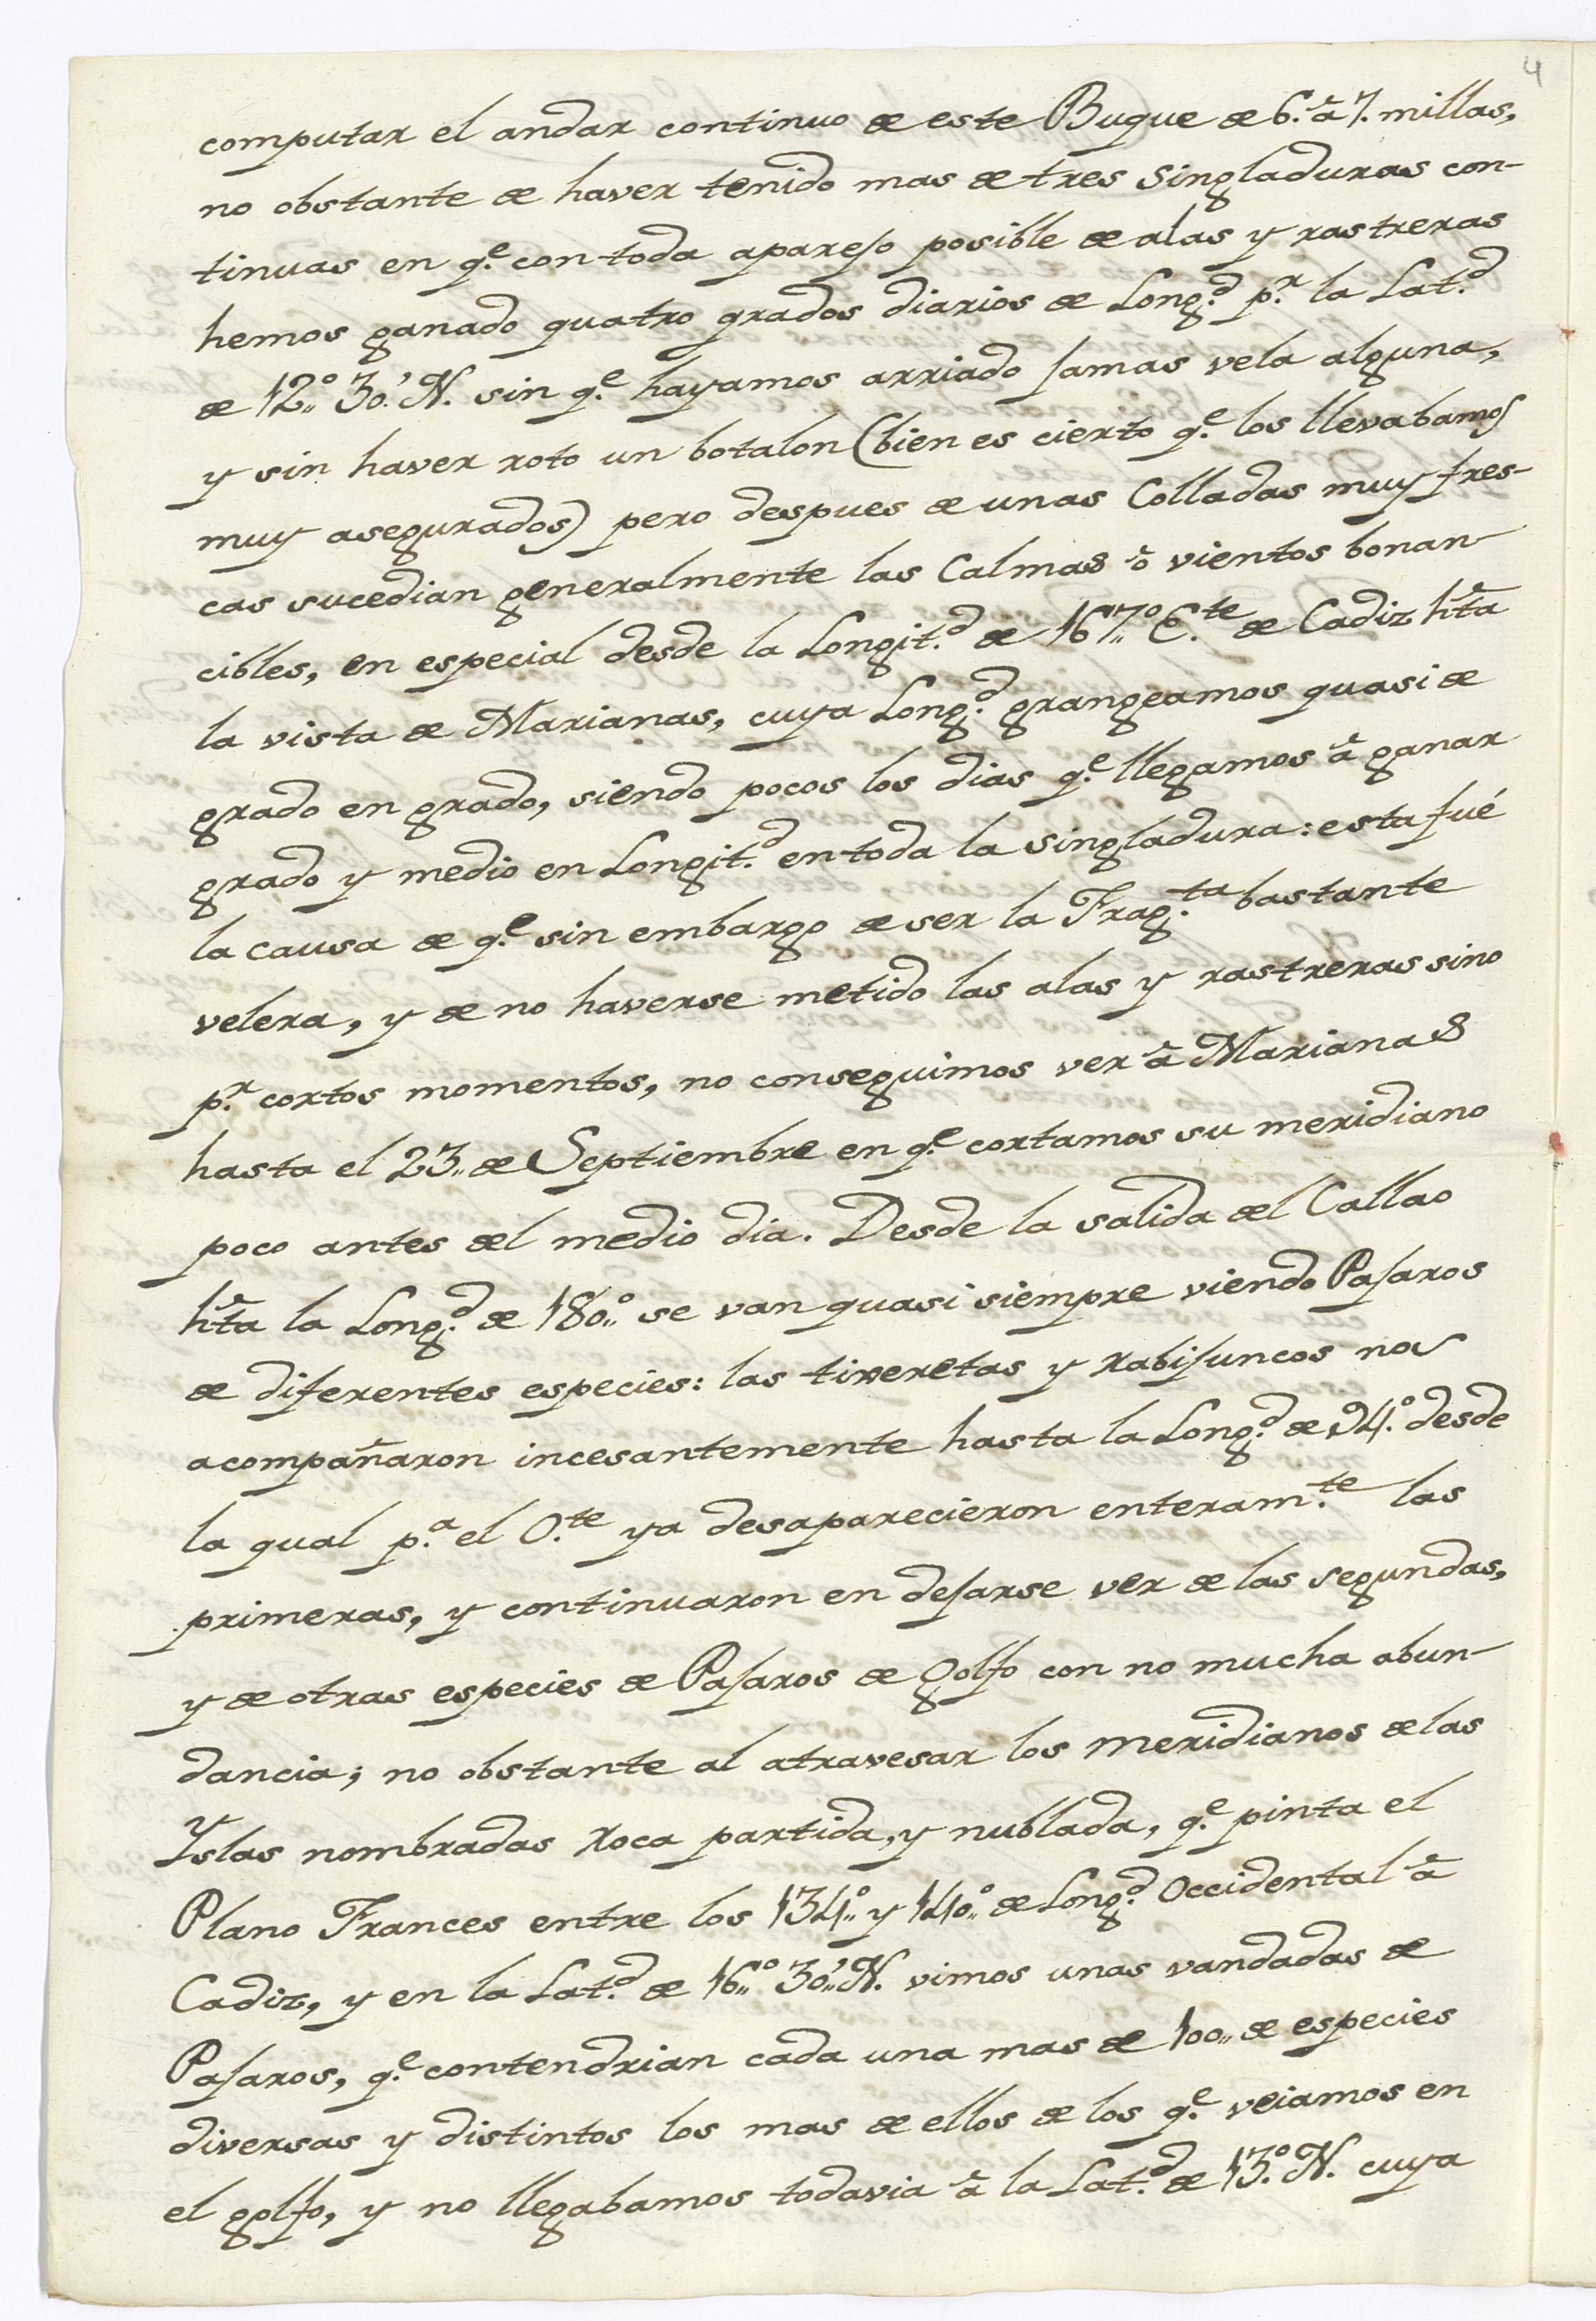 4
computar el andar continuo de este Buque de 6. à 7. millas,
no obstante de haver tenido mas de tres Singladuras con-
tinuas en q.e con toda aparejo posible de alas y rastreras
hemos ganado quatro grados diarios de Long.d p.r la Lat.d
de 12,,° 30.' N. sin q.e hayamos arriado jamas vela alguna,
y sin haver roto un botalon (bien es cierto q.e los llevabamos
muy asegurados) pero despues de unas Colladas muy fres-
cas sucedian generalmente las Calmas ò vientos bonan-
cibles, en especial desde la Longit.d de 167,,° E.te de Cadiz hta
la vista de Marianas, cuya Long.d grangeamos quasi de
grado en grado, siendo pocos los dias q.e llegamos à ganar
grado y medio en Longit.d en toda la singladura: esta fué
la causa de q.e sin embargo de ser la Frag.ta bastante
velera, y de no haverse metido las alas y rastreras sino
p.r cortos momentos, no conseguimos ver à Marianas
hasta el 23,, de Septiembre en q.e cortamos su meridiano
poco antes del medio dia. Desde la salida del Callao
hta la Long.d de 180,,° se van quasi siempre viendo Pajaros
de diferentes especies: las tixeretas y rabijuncos nos
acompañaron incesantemente hasta la Long.d de 94.° desde
la qual p.a el O.te ya desaparecieron enteram.te las
primeras, y continuaron en dejarse ver de las segundas,
y de otras especies de Pajaros de golfo con no mucha abun-
dancia; no obstante al atravesar los meridianos de las
Yslas nombradas Roca partida, y nublada, q.e pinta el
Plano Frances entre los 134,,° y 140,,° de Long.d Occidental à
Cadiz, y en la Lat.d de 16,,° 30,,' N. vimos unas vandadas de
Pajaros, q.e contendrian cada una mas de 100,, de especies
diversas y distintos los mas de ellos de los q.e veiamos en
el golfo, y no llegabamos todavia à la Lat.d de 13.° N. cuya